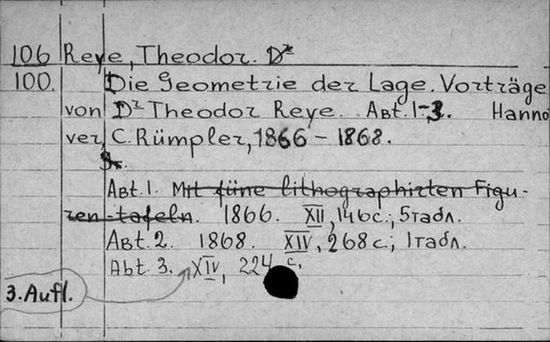 106 Reye, Theodor. Dr
100. Die Geometrie der Lage. Vorträge
von Dr Theodor Reye. Abt. 1-3. Hanno
ver, C. Rümpler, 1866 – 1868.
8°.
Abt. 1. Mit füne lithographirten Figu-
ren-tafeln. 1866. XII, 146 c.; 5 табл.
Abt. 2. 1868. XIV, 268 c.; 1 табл.
Abt. 3. XIV, 224 c.
3. Aufl.